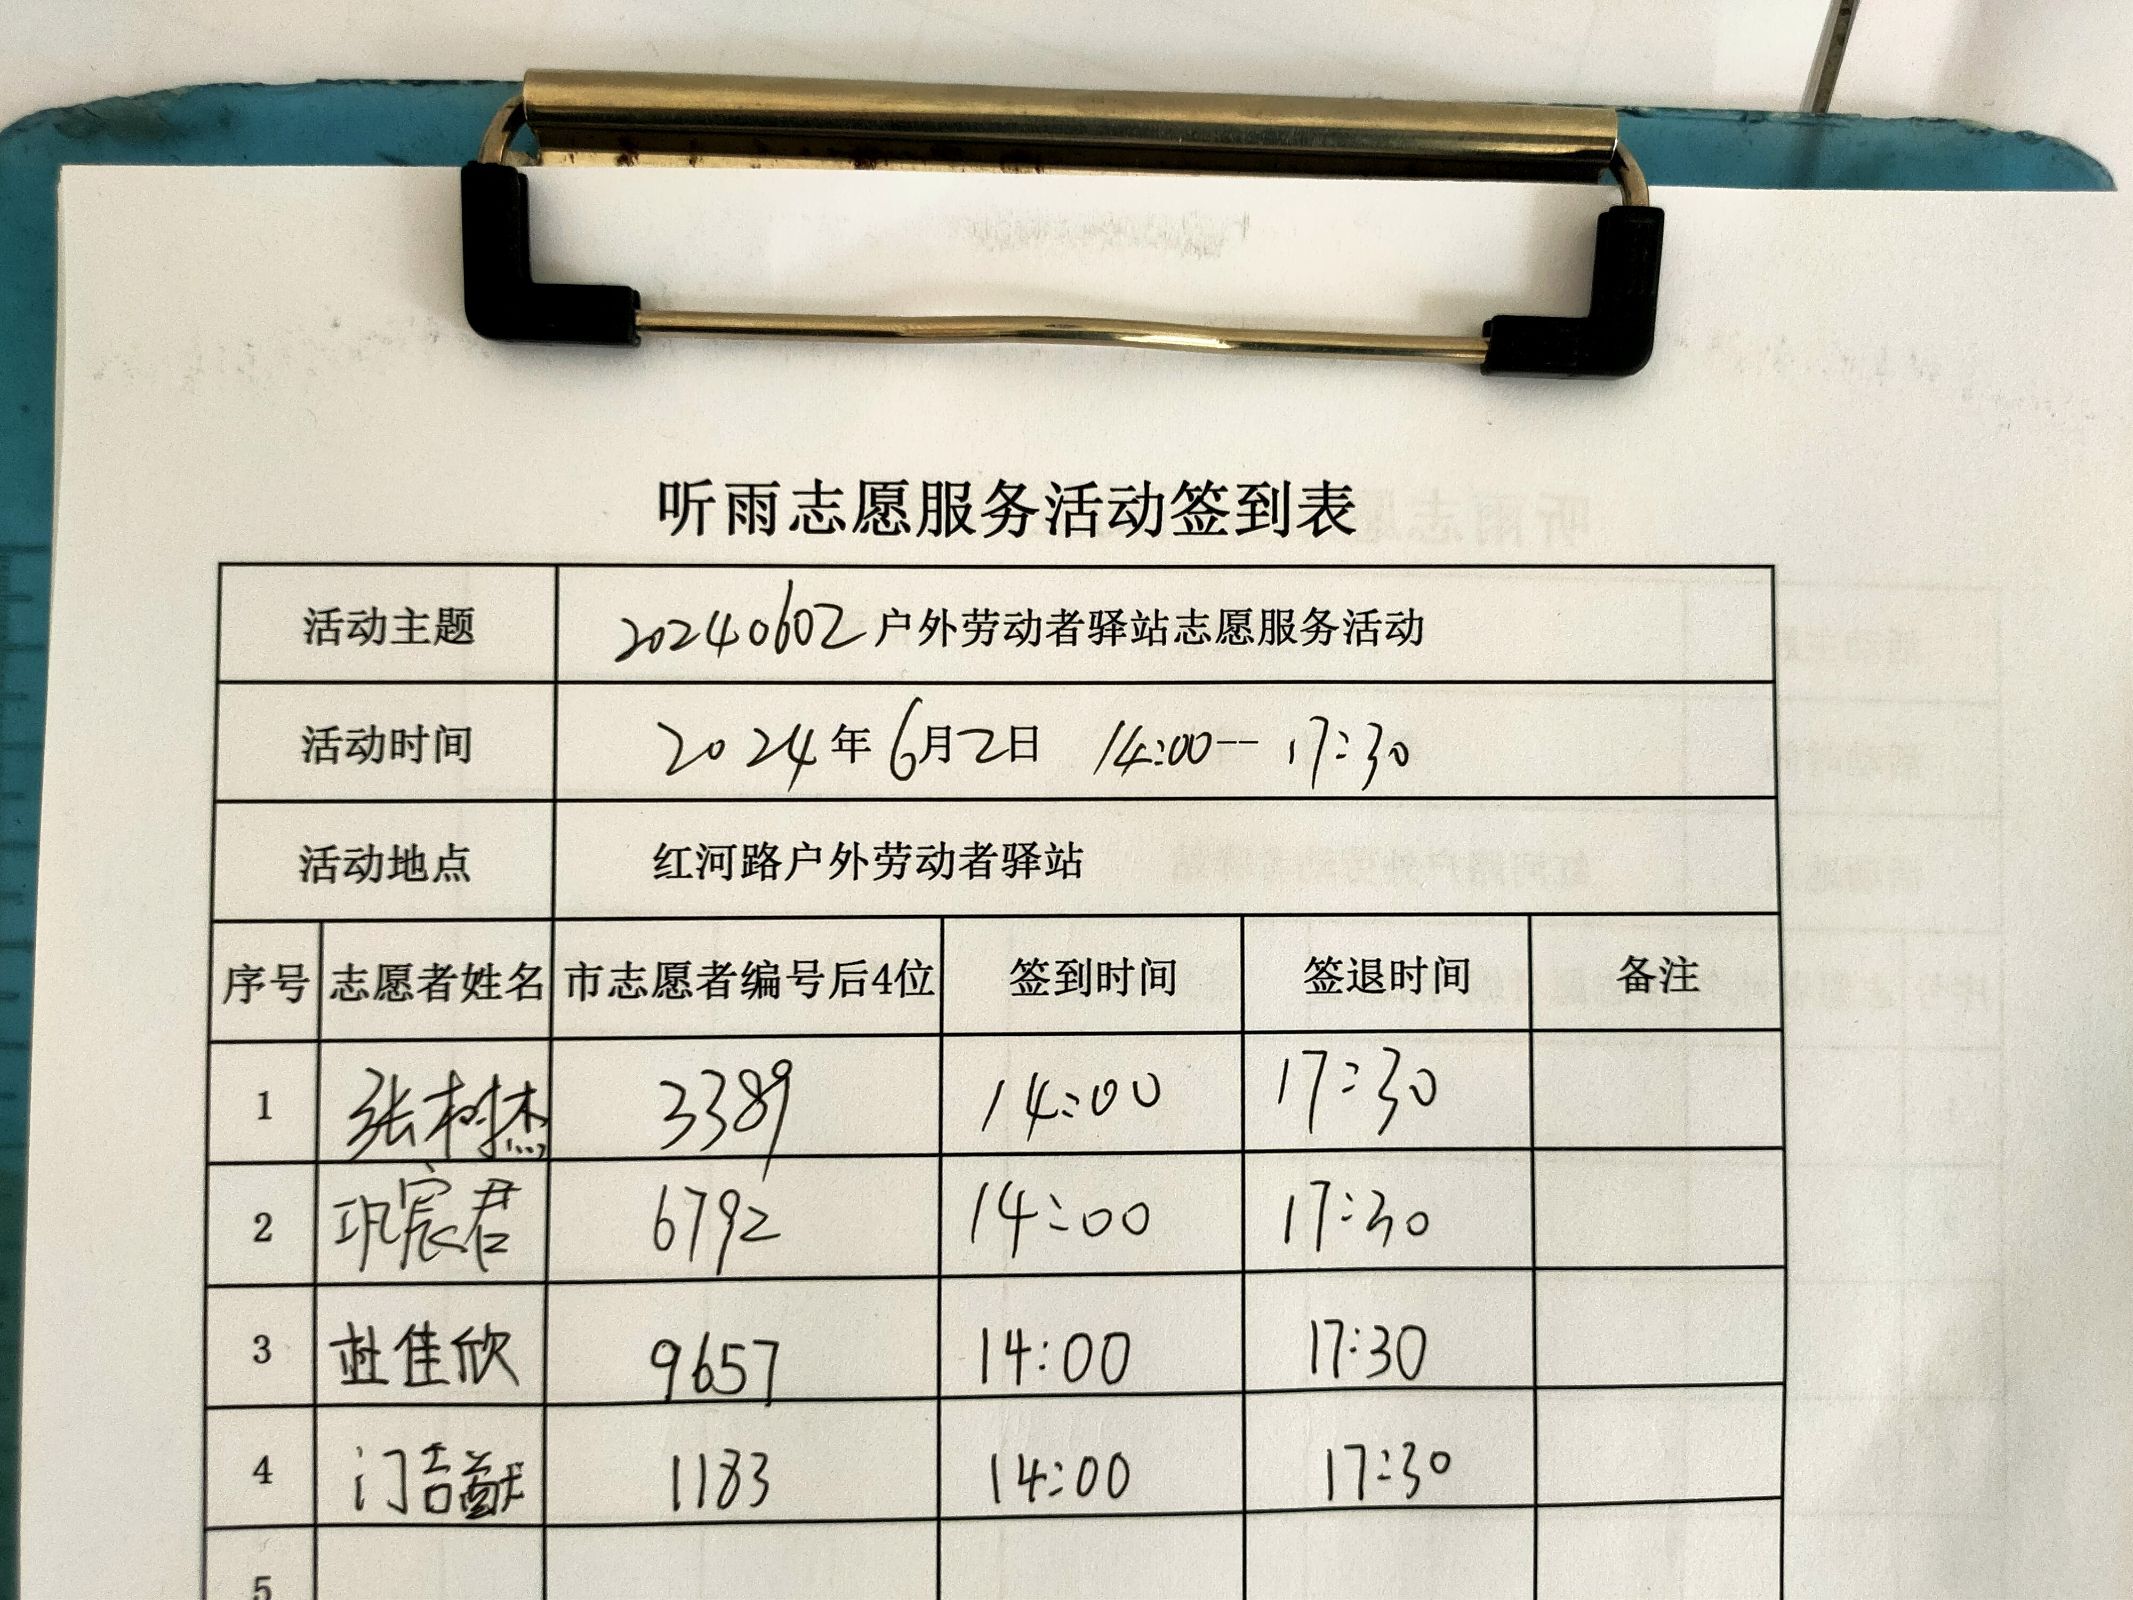 听雨志愿服务活动签到表
活动主题 20240602户外劳动者驿站志愿服务活动
活动时间 2024年6月2日 14:00--17:30
活动地点 红河路户外劳动者驿站
序号 志愿者姓名 市志愿者编号后4位 签到时间 签退时间 备注
1 张树杰 3389 14:00 17:30
2 巩宸君 6792 14:00 17:30
3 杜佳欣 9657 14:00 17:30
4 门吉猷 1183 14:00 17:30
5